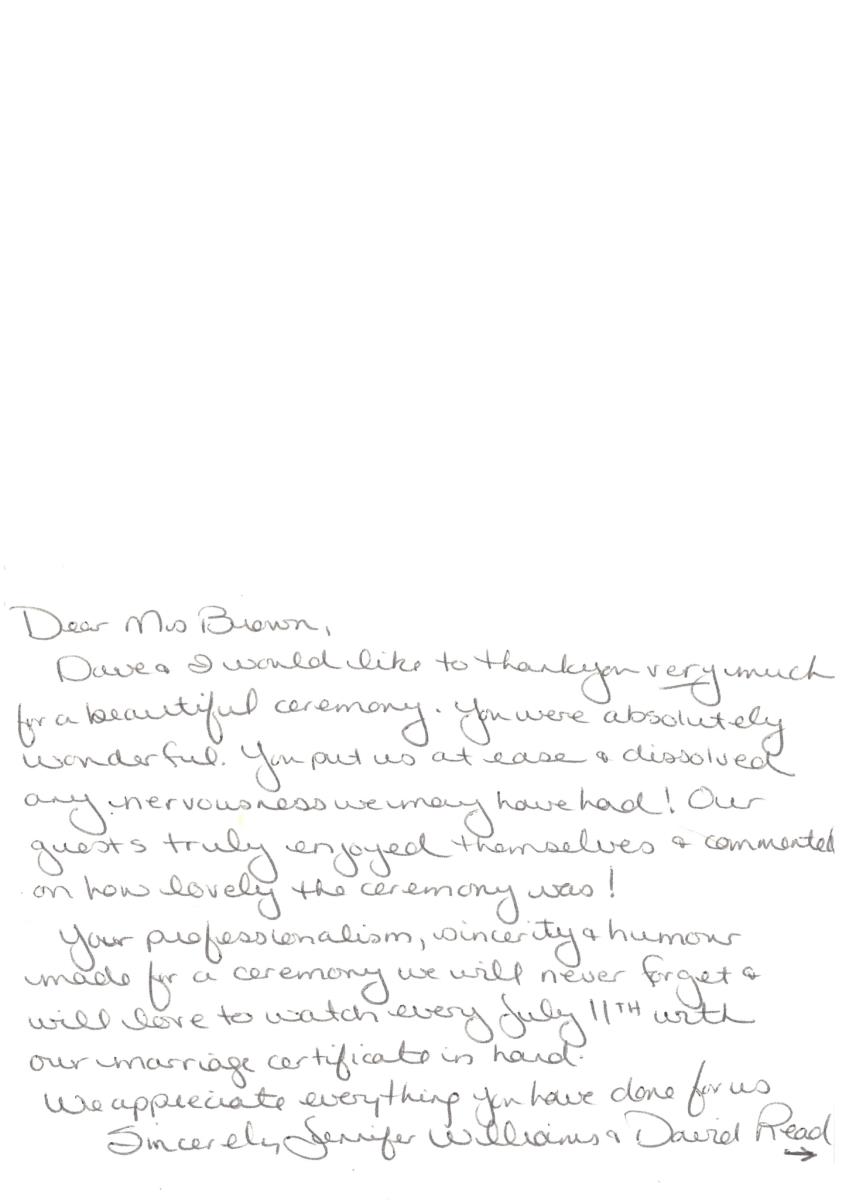 Dear Mrs Brown,
Dave & I would like to thank you very much
for a beautiful ceremony. You were absolutely
wonderful. You put us at ease & dissolved
any nervousness we may have had! Our
guests truly enjoyed themselves & commented
on how lovely the ceremony was!
Your professionalism, sincerity & humour
made for a ceremony we will never forget &
will love to watch every July 11TH with
our marriage certificate in hand.
We appreciate everything you have done for us
Sincerely, Jennifer Williams & David Read
→